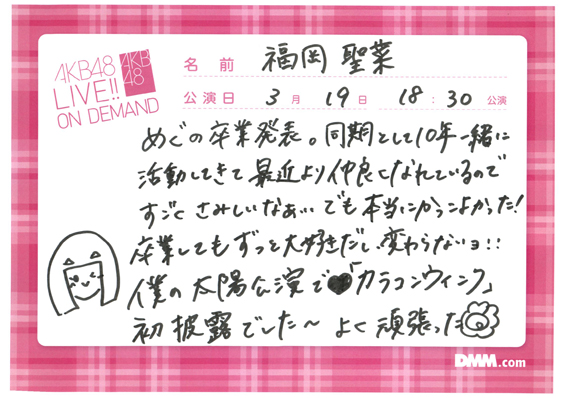 AKB48
LIVE!!
ON DEMAND
AKB
48
名前 福岡 聖菜
公演日 3月 19日 18:30 公演
めぐの卒業発表。同期として10年一緒に
活動してきて最近より仲良くなれているので
すごくさみしいなぁ… でも本当にかっこよかった!
卒業してもずっと大好きだし、変わらないョ!!
僕の太陽公演で♥「カラコンウインク」
初披露でした〜 よく頑張った
DMM.com